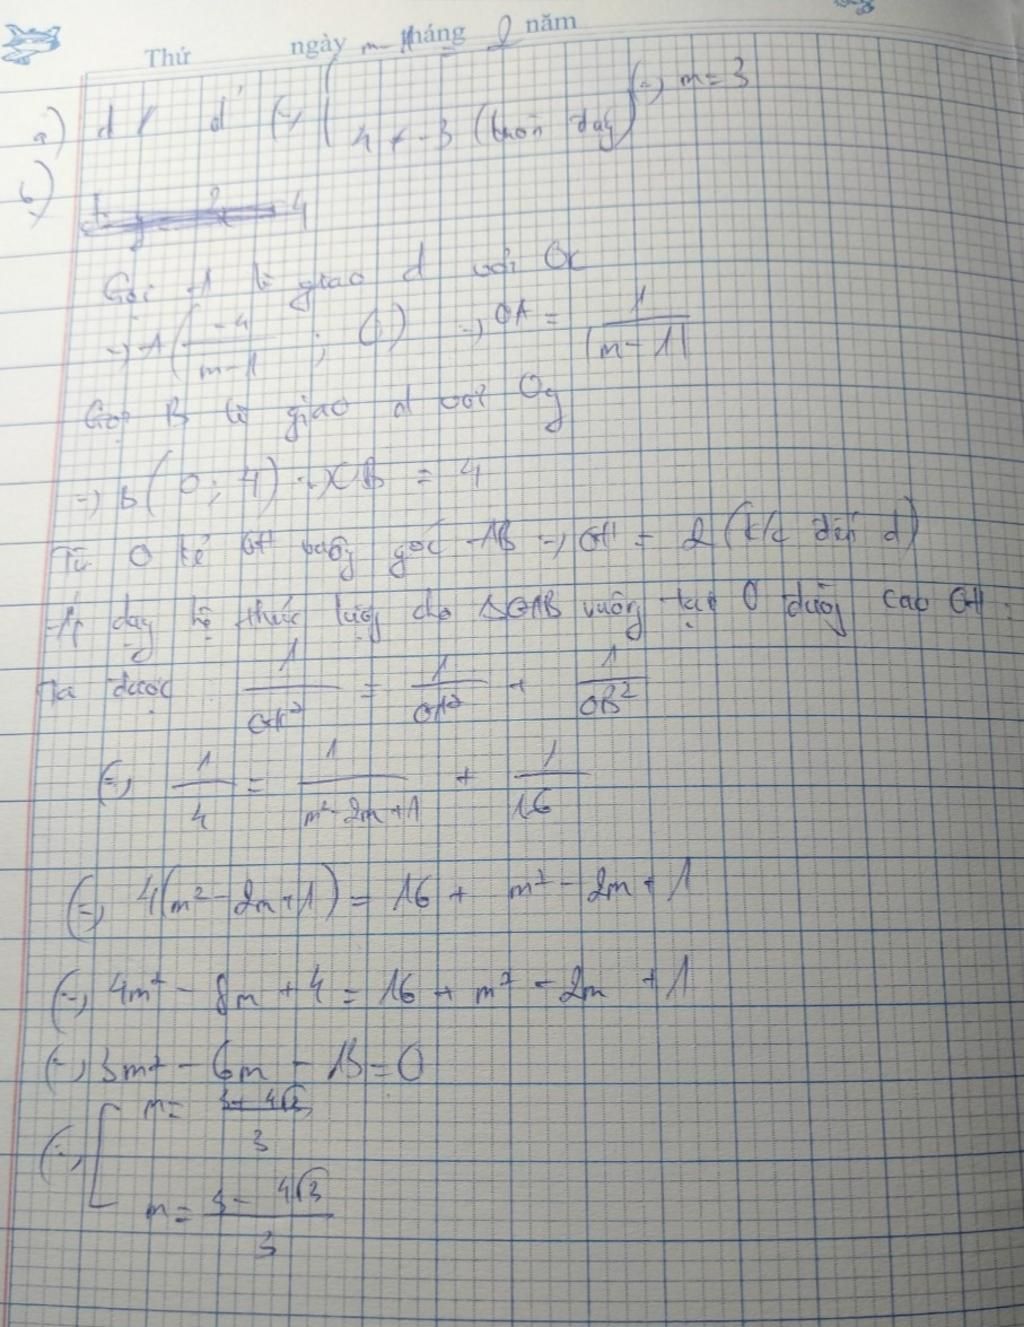 Thứ ngày tháng năm
m-1 = 2
a) d // d' (=) 4 ≠ -3 (luôn đúng) (=) m = 3
b)
4
Gọi A là giao d với Ox
=> A(-4/(m-1) ; 0) => OA = 1/|m-1|
Gọi B là giao d với Oy
=> B(0; 4) => OB = 4
Từ O kẻ OH vuông góc AB => OH = 2 (k/c đến d)
Áp dụng hệ thức lượng cho ΔOAB vuông tại O đường cao OH :
Ta được 1/OH² = 1/OA² + 1/OB²
(=) 1/4 = 1/(m²-2m+1) + 1/16
(=) 4(m²-2m+1) = 16 + m²-2m+1
(=) 4m²-8m+4 = 16 + m²-2m+1
(=) 3m²-6m-13=0
(=) [ m = (3+4√3)/3
m = (3-4√3)/3